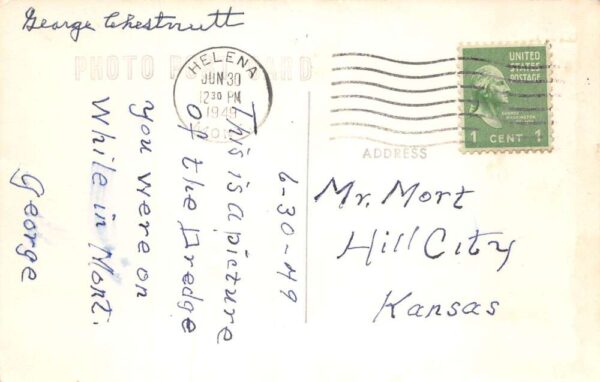 George Chestnutt
PHOTO POST CARD
HELENA
JUN 30
12 30 PM
1949
MONT.
UNITED
STATES
POSTAGE
1 CENT 1
ADDRESS
6-30-49
This is a picture
of the Dredge
you were on
While in Mont.
George
Mr. Mort
Hill City
Kansas